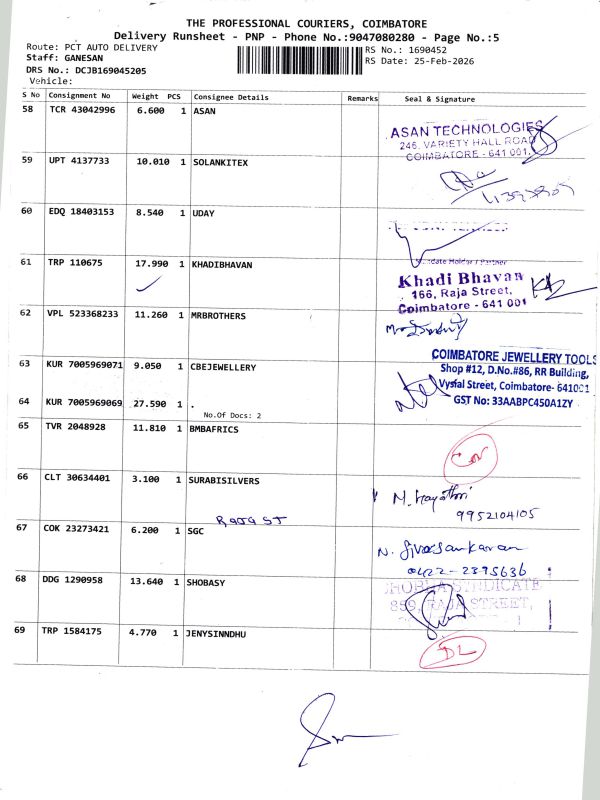 THE PROFESSIONAL COURIERS, COIMBATORE
Delivery Runsheet - PNP - Phone No.:9047080280 - Page No.:5
Route: PCT AUTO DELIVERY
RS No.: 1690452
Staff: GANESAN
RS Date: 25-Feb-2026
DRS No.: DCJB169045205
Vehicle:
S No Consignment No Weight PCS Consignee Details Remarks Seal & Signature
58 TCR 43042996 6.600 1 ASAN
ASAN TECHNOLOGIES
246, VARIETY HALL ROAD
COIMBATORE - 641 001.
59 UPT 4137733 10.010 1 SOLANKITEX
60 EDQ 18403153 8.540 1 UDAY
61 TRP 110675 17.990 1 KHADIBHAVAN
Khadi Bhavan
166, Raja Street,
Coimbatore - 641 001
62 VPL 523368233 11.260 1 MRBROTHERS
COIMBATORE JEWELLERY TOOLS
Shop #12, D.No.#86, RR Building,
Vysial Street, Coimbatore- 641001
GST No: 33AABPC450A1ZY
63 KUR 7005969071 9.050 1 CBEJEWELLERY
64 KUR 7005969069 27.590 1 .
No.Of Docs: 2
65 TVR 2048928 11.810 1 BMBAFRICS
66 CLT 30634401 3.100 1 SURABISILVERS
9952104105
Raja ST
67 COK 23273421 6.200 1 SGC
N. Sivasankaran
0422-2395636
68 DDG 1290958 13.640 1 SHOBASY
SHOBHA SYNDICATE
859, RAJA STREET,
69 TRP 1584175 4.770 1 JENYSINNDHU
DL